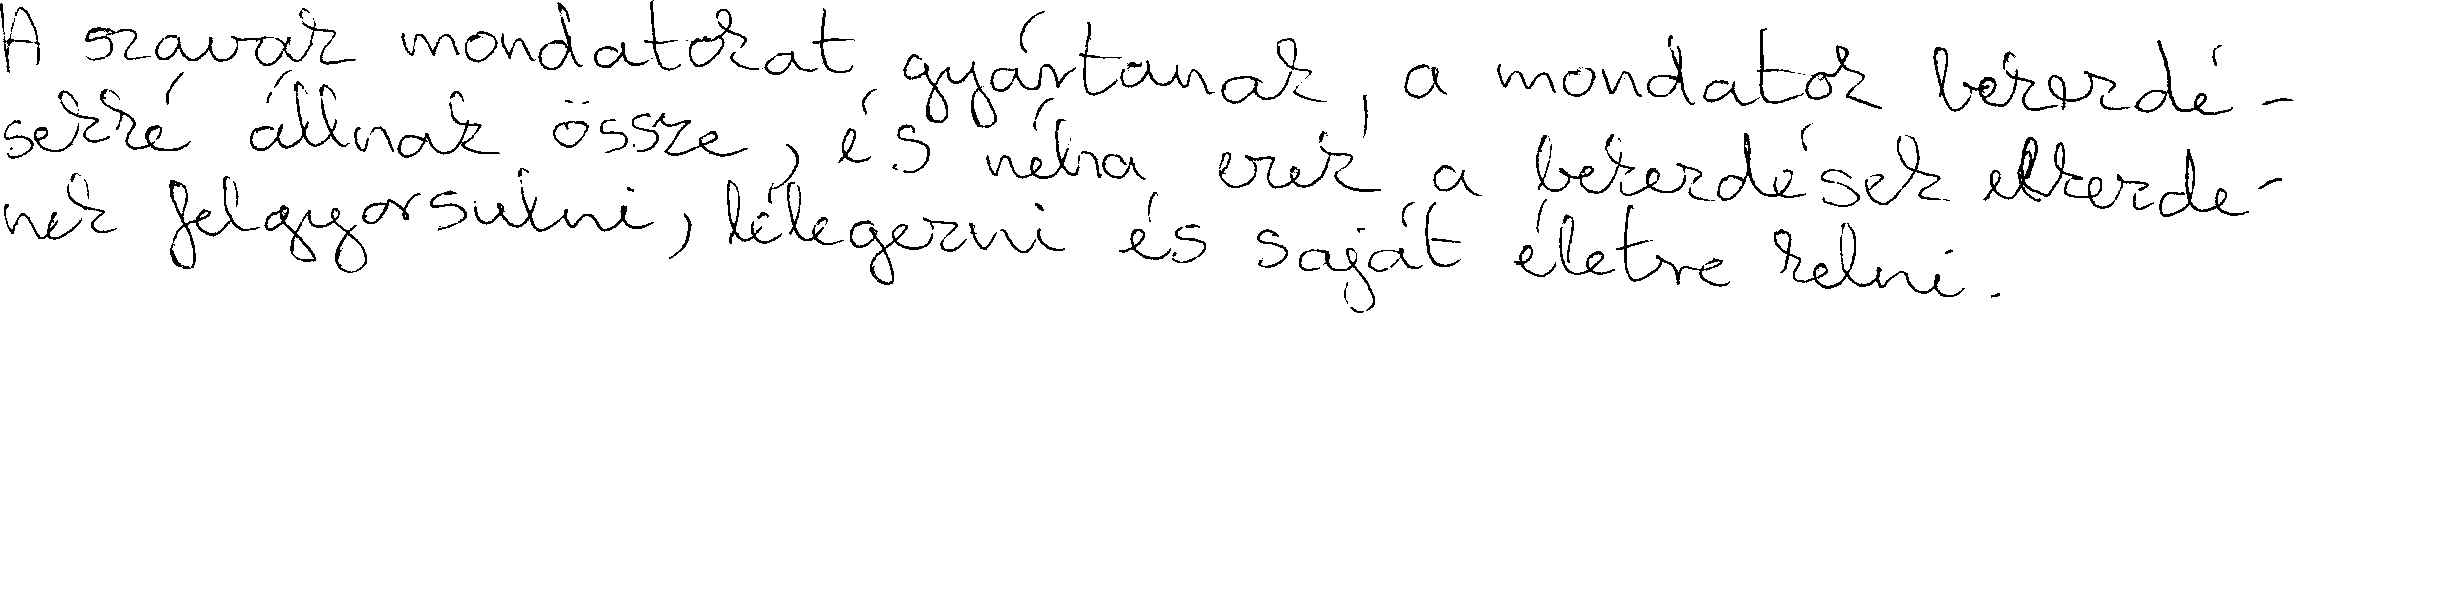 A szavak mondatokat gyártanak, a mondatok bekezdé-
sekké állnak össze, és néha ezek a bekezdések elkezde-
nek felgyorsulni, lélegezni és saját életre kelni.